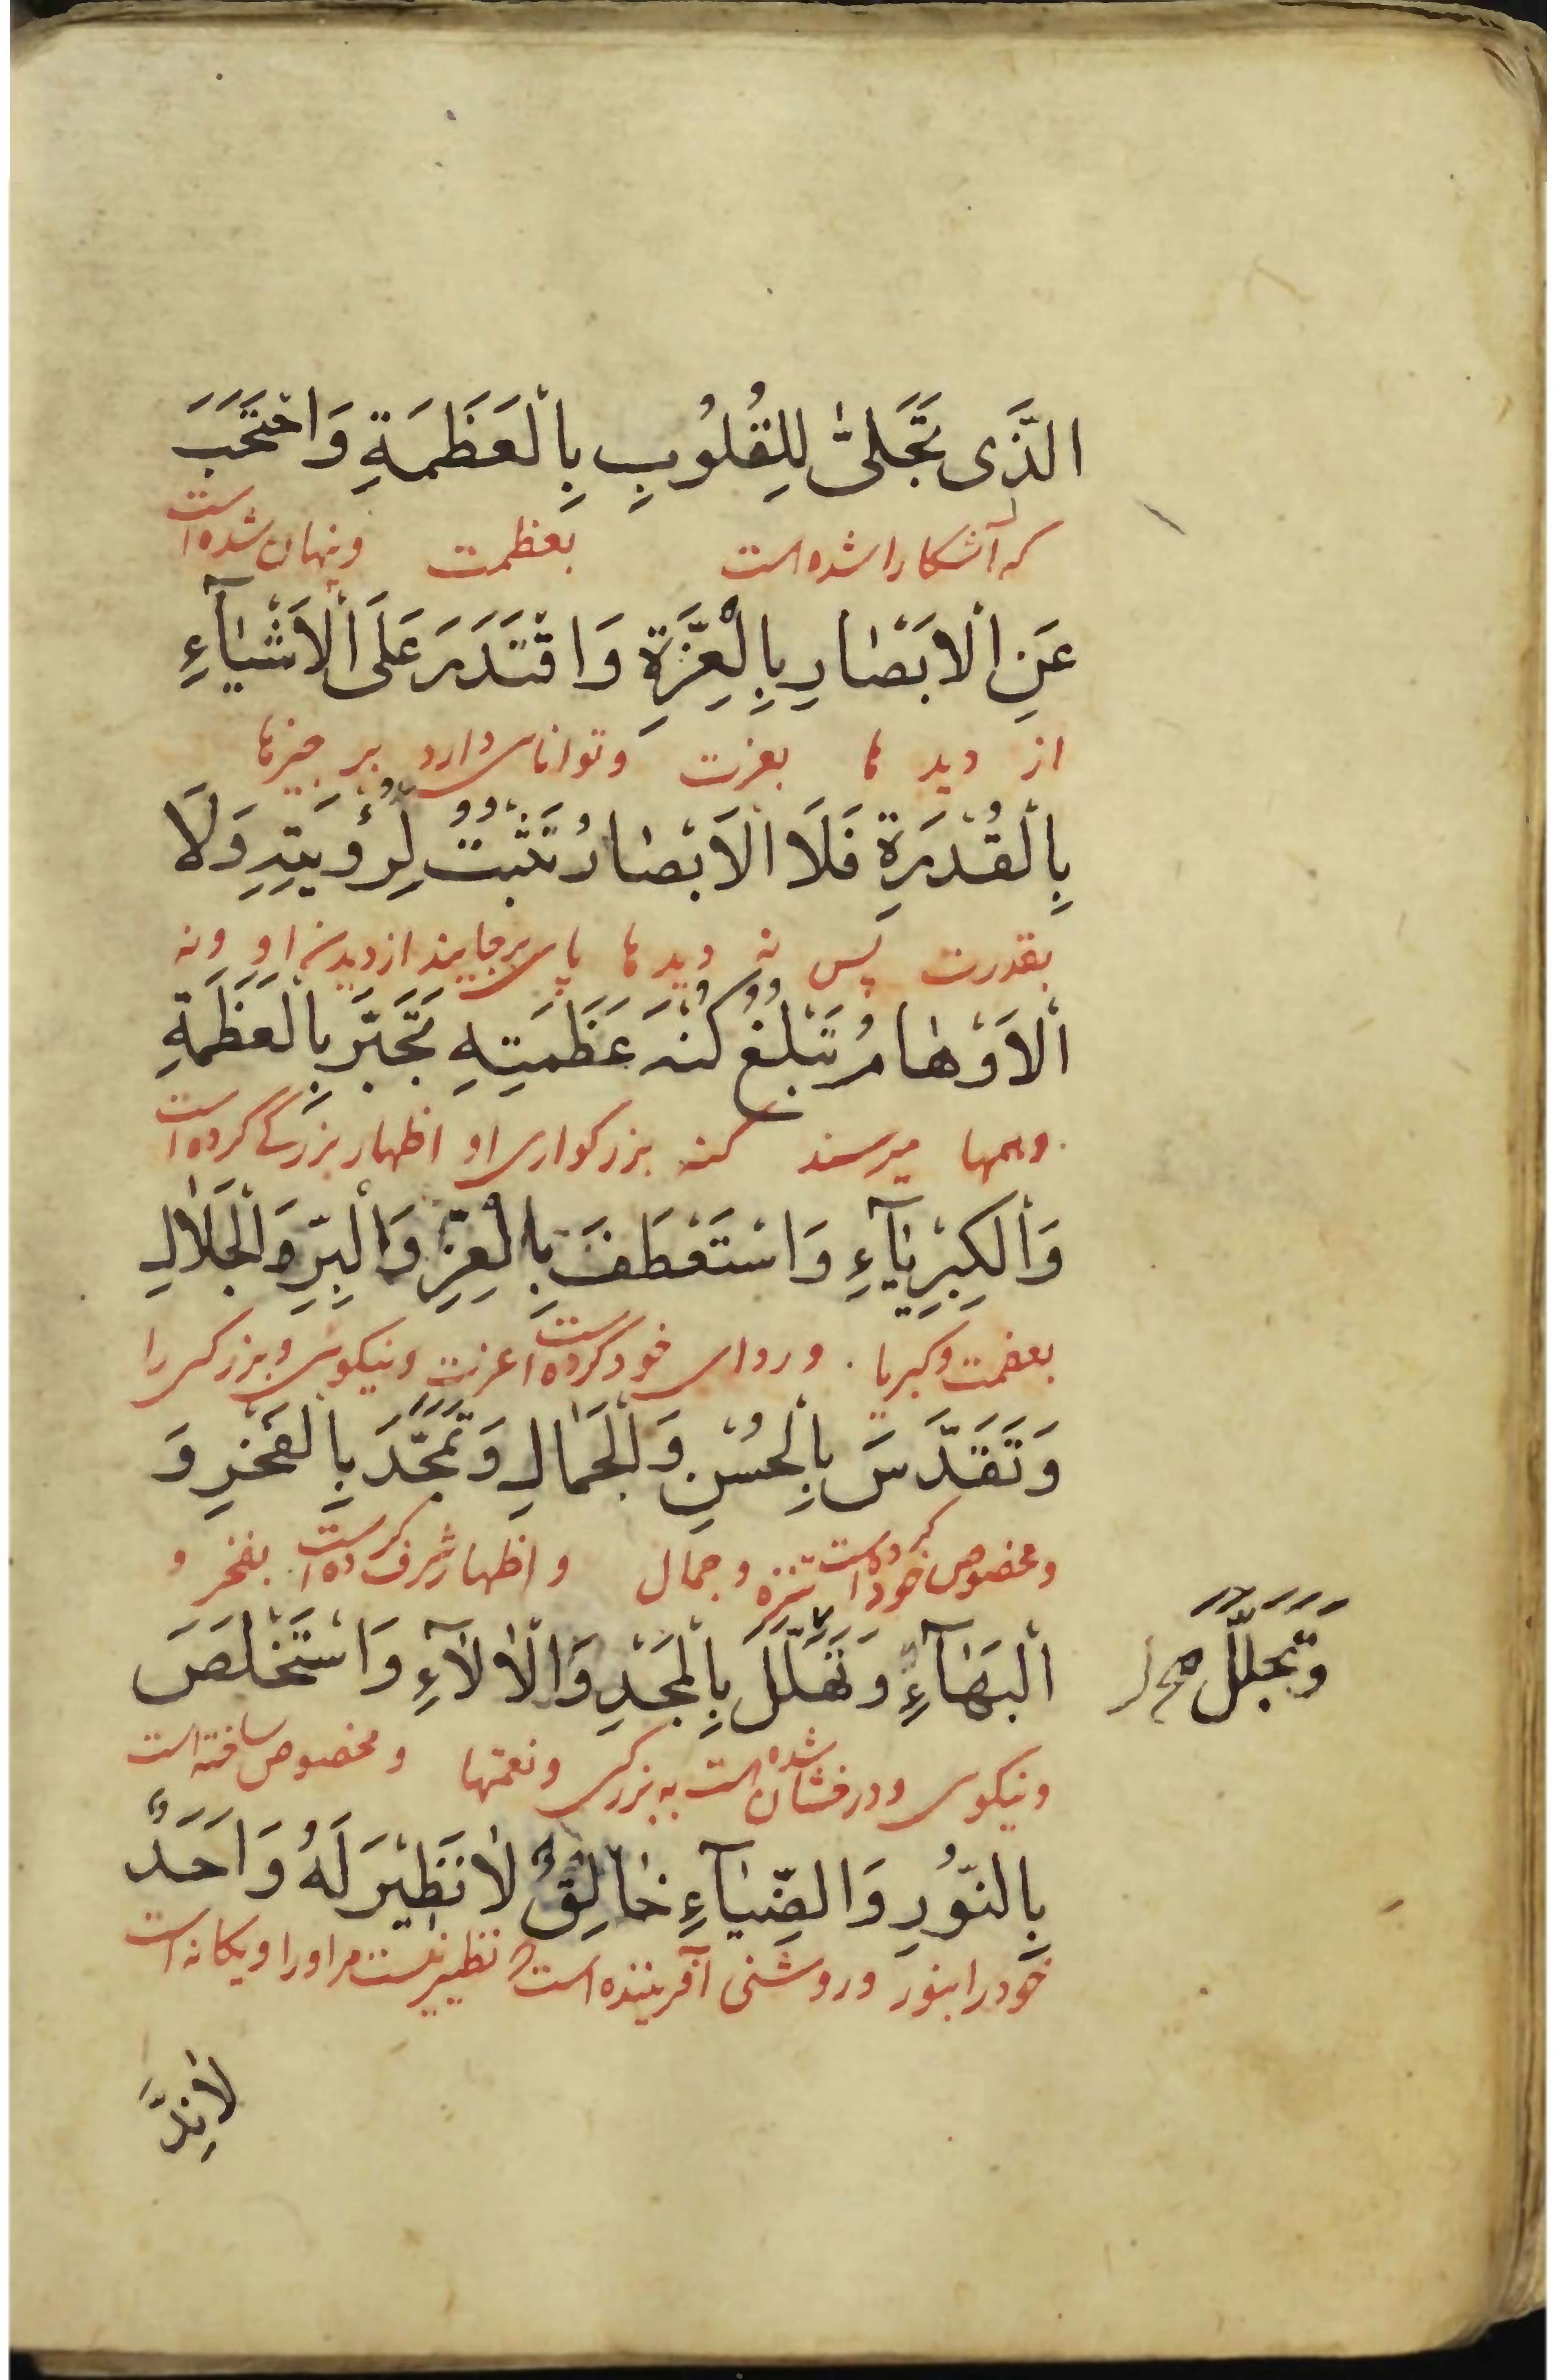 الَّذَى تَجَلىّٰ لِلِقُلُوُبِ بِاْلعَظَمَةِ وَاحْتَجَبَ
که آشکارا شده است بعظمت ونهان شده است
عَنِ اْلاَبَصْٰارِ بِاِلْعِزَّةِ وَاقْتَدَرَ عَلَى اْلاَشْيٰآءِ
از دید ها بعزت وتوانای دارد بر چیزها
بِاْلقُدْرَةِ فَلَا اْلاَبْصٰارُ تَثْبُتُ لِرُؤْيَتِهِ وَلَا
بقدرت پس نه دید ها پای برجایند از دیدن او ونه
اْلاَوْهٰامُ تَبْلُغُ كُنْهَ عَظَمَتِهِ تَجَبَّرَ بِاْلعَظَمَةِ
وهمها میرسند کنه بزرکواری او اظهار بزرگی کرده است
وَاْلكِبِرْيٰآءِ وَاسْتَعْطَفَ بِاِلْعِزِّ وَاْلبِرِّ وَاْلجَلاٰلِ
بعظمت وکبریا وردای خود کرده است عزت ونیکوی وبزرکی را
وَتَقَدَّسَ بِاِلْحُسْنِ وَاْلجَمٰالِ وَتَمَجَّدَ بِاْلفَخْرِ وَ
ومخصوص خود کرده است تنزه وجمال و اظهار شرف کرده است بفخر و
اْلبَهٰآءِ وَتَهَلَّلَ بِاْلمَجَدِ وَاْلاٰلآءِ وَاسْتَخْلَصَ
وَتَجَلَّلَ صح ل
ونیکوی ودرفشان شده است به بزرکی ونعمتها ومخصوص ساخته است
بِالنّوُرِ وَالضِّيٰآءِ خٰالِقٌ لاٰ نَظٖيْرَ لَهُ وَاَحَدٌ
خود را بنور وروشنی آفریننده است نظیر نیست مر او را ویکانه است
لاٰنِدَّ